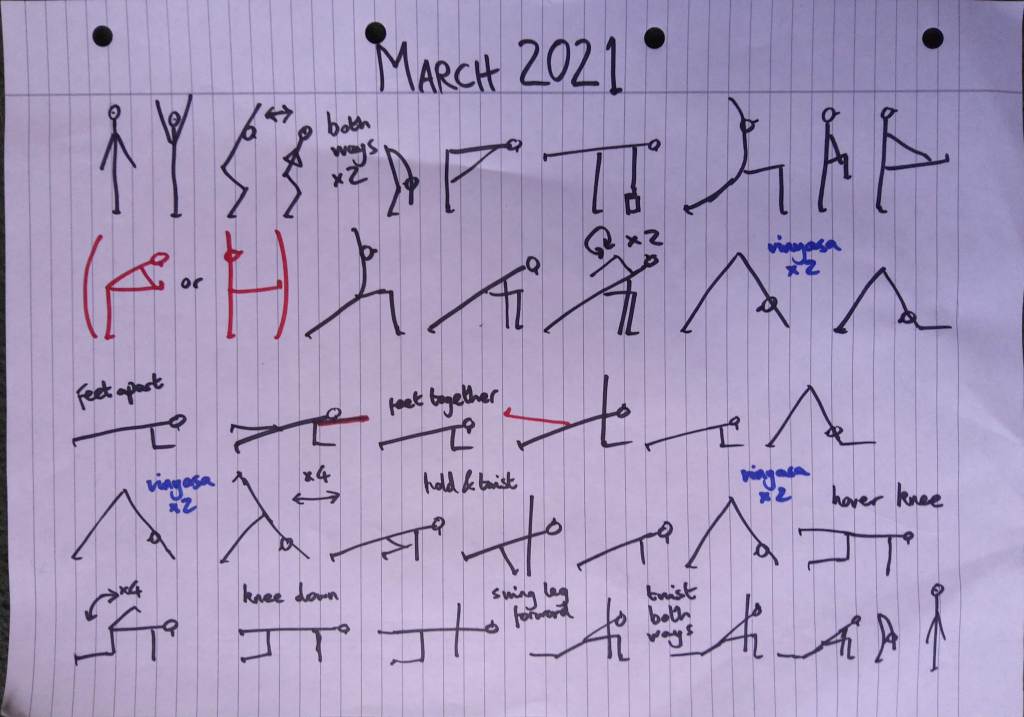 MARCH 2021
both
ways
x2
or
x2
vinyasa
x2
feet apart
feet together
vinyasa
x2
x4
hold & twist
vinyasa
x2
hover knee
x4
knee down
swing leg
forward
twist
both
ways